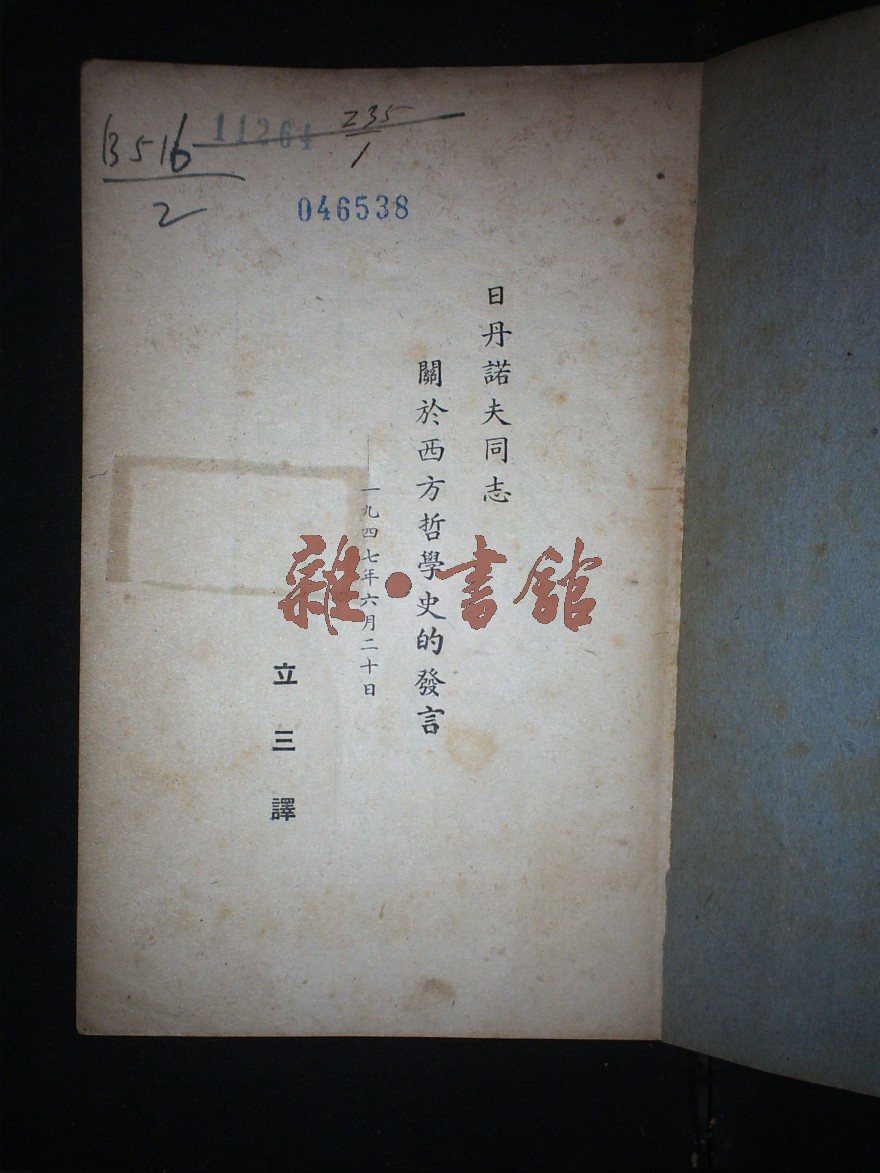 B516
2
11264
Z35
1
046538
日丹諾夫同志
關於西方哲學史的發言
一九四七年六月二十日
立三譯
雜·書館